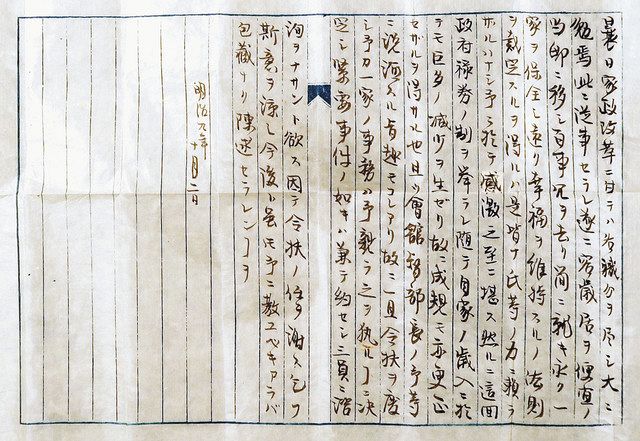 曩日家政改革ニ付テハ各職分ヲ尽シ大ニ
勉焉此ニ從事セラレ遂ニ客歳居ヲ便宜ノ
当邸ニ移シ百事冗ヲ去リ簡ニ就キ永ク一
家ヲ保全シ遠ク幸福ヲ維持スルノ法則
ヲ裁定スルヲ得ルハ是皆ナ氏等ノ力ニ頼ラ
サルハナシ予ニ於テ感激之至ニ堪ス然ルニ這回
政府禄券ノ制ヲ挙ラレ随テ自家ノ歳入ニ於
テモ巨多ノ減少ヲ生ゼリ故ニ成規モ亦更正
セザルヲ得サル也且ツ會館督部長ノ予等
ニ説諭スル旨趣モコレアリ故ニ一旦令扶ヲ廃
シ予カ一家ノ事務ハ予親ラ之ヲ執ルヿニ決
定シ緊要事件ノ如キハ兼テ約セシ三員ニ諮
詢ヲナサント欲ス因テ令扶ノ任ヲ謝ス乞フ
斯意ヲ諒シ今後ト雖モ予ニ教ユベキアラバ
包蔵ナク陳述セラレンヿヲ
明治九年十月二日